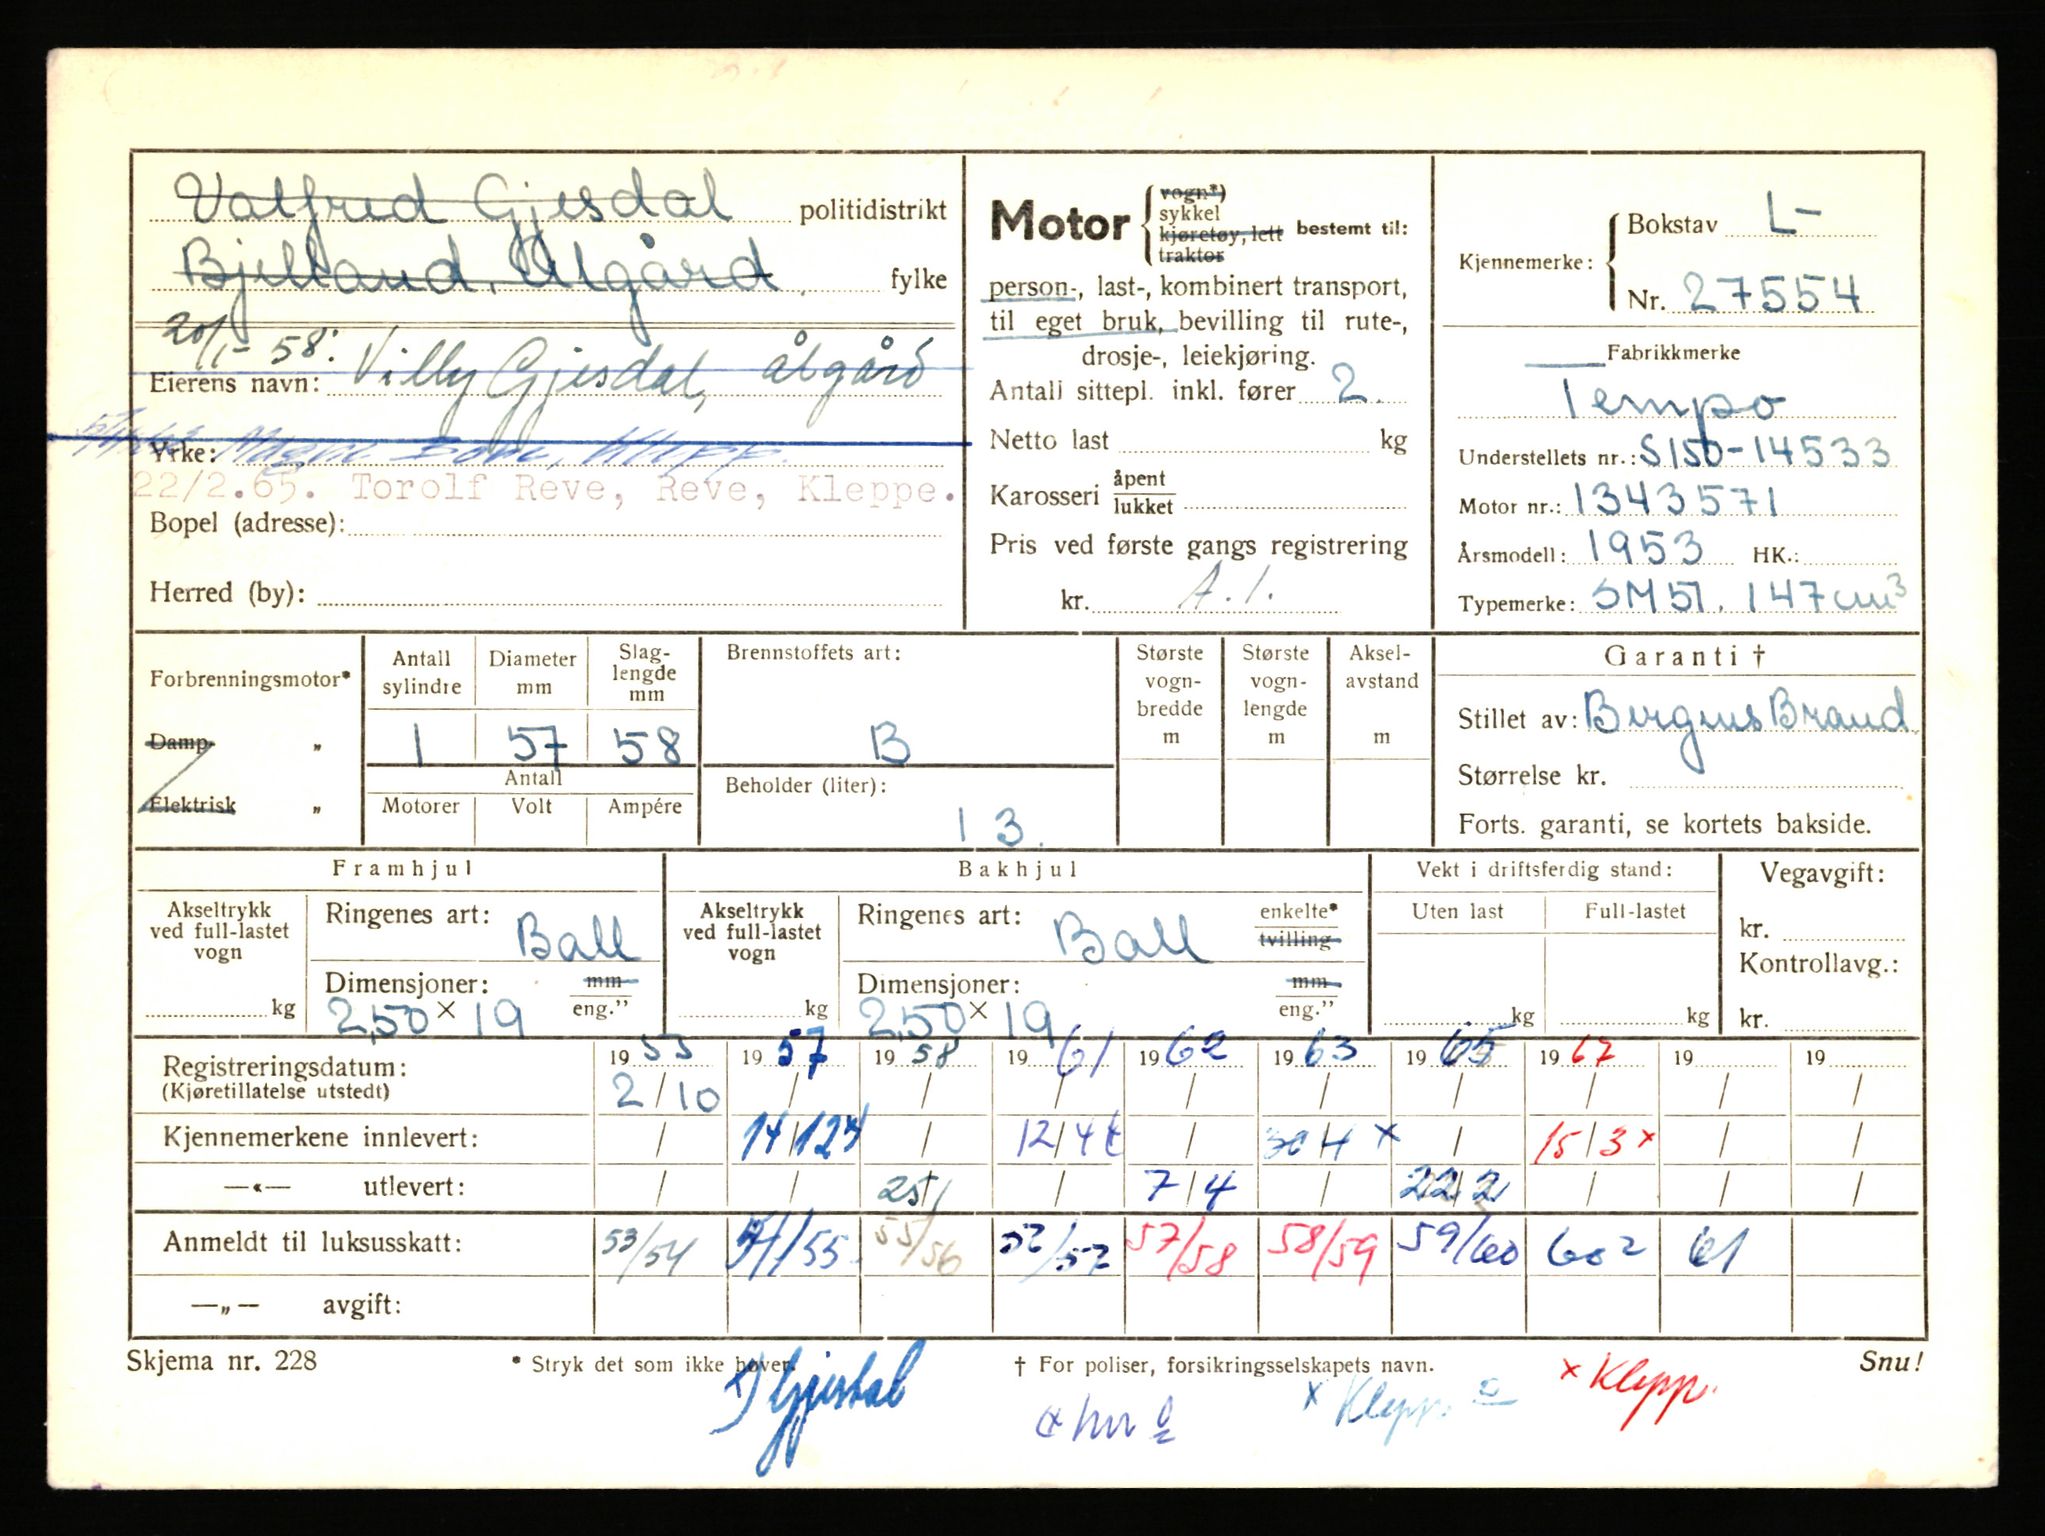 Valfred Gjesdal politidistrikt
Bjelland, Ålgård fylke
20/1-58: Villy Gjesdal, ålgård
Eierens navn:
Yrke: Magne Bore, Klepp.
22/2.65. Torolf Reve, Reve, Kleppe.
Bopel (adresse):
Herred (by):
Motor vogn*) sykkel kjøretøy, lett traktor bestemt til:
person-, last-, kombinert transport,
til eget bruk, bevilling til rute-,
drosje-, leiekjøring.
Antall sittepl. inkl. fører 2.
Netto last kg
Karosseri åpent lukket
Pris ved første gangs registrering
kr. A.1.
Kjennemerke: Bokstav L-
Nr. 27554
Fabrikkmerke
Tempo
Understellets nr.: S150-14533
Motor nr.: 1343571
Årsmodell: 1953 HK.:
Typemerke: SM51. 147cm³
Forbrenningsmotor*
Damp "
Elektrisk "
Antall sylindre 1
Diameter mm 57
Slag-lengde mm 58
Antall
Motorer Volt Ampére
Brennstoffets art:
B
Beholder (liter):
13.
Største vogn-bredde m
Største vogn-lengde m
Aksel-avstand m
Garanti †
Stillet av: Bergens Brand.
Størrelse kr.
Forts. garanti, se kortets bakside.
Framhjul
Akseltrykk ved full-lastet vogn kg
Ringenes art: Ball
Dimensjoner: mm eng."
2,50 × 19
Bakhjul
Akseltrykk ved full-lastet vogn kg
Ringenes art: Ball enkelte* tvilling
Dimensjoner: mm eng."
2,50 × 19
Vekt i driftsferdig stand:
Uten last Full-lastet
kg kg
Vegavgift:
kr.
Kontrollavg.:
kr.
Registreringsdatum: 1953 1957 1958 1961 1962 1963 1965 1967 19 19
(Kjøretillatelse utstedt) 2/10 / / / / / / / / /
Kjennemerkene innlevert: / 14/12 / 12/4 / 30/4 × / 15/3 × / /
—«— utlevert: / / 25/1 / 7/4 / 22/2 / / /
Anmeldt til luksusskatt: 53/54 54/55 55/56 57/58 58/59 59/60 60² 61
—„— avgift:
Skjema nr. 228 * Stryk det som ikke høver. † For poliser, forsikringsselskapets navn. Snu!
Gjesdal × Klepp. × Klepp.